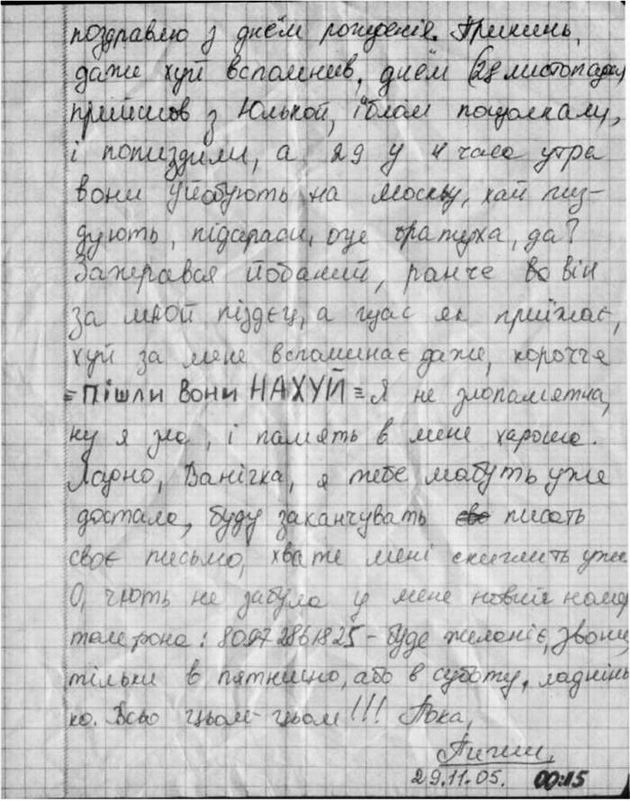 поздравлю з днём рожденія. Прикинь,
даже хуй вспомнив, днём (28 листопада)
прийшов з Юлькой, їблом пощолкали,
і попиздили, а 29 у 4 часа утра
вони уйобують на Москву, хай пиз-
дують, підараси, оце братуха, да?
Зажерався йобаний, ранче во він
за мной піздєц, а щас як приїжає,
хуй за мене вспоминає даже, корочче
= Пішли Вони НАХУЙ = Я не злопамятна,
ну я зла, і память в мене хароша.
Ладно, Ванічка, я тебе мабуть уже
достала, буду заканчувать сво писать
своє письмо, хвате мені скиглить уже
О, чють не забула у мене новий номер
телефона: 80972861825 - буде желаніє, звони,
тільки в пятницю, або в суботу, ладнінь-
ко. Всьо цьом-цьом!!! Пока,
Пиши,
29.11.05. 00:15